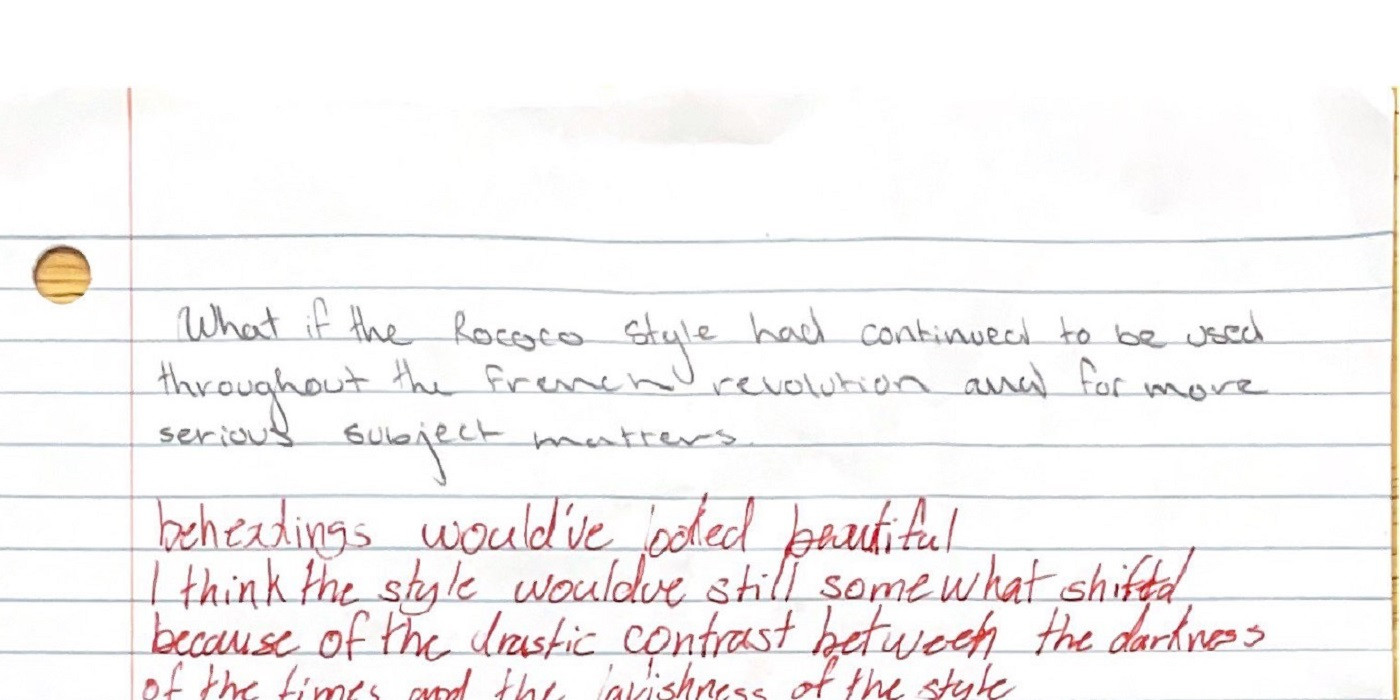 What if the Rococo style had continued to be used
throughout the French revolution and for more
serious subject matters.
beheadings would've looked beautiful
I think the style wouldve still somewhat shiftd
because of the drastic contrast between the darkness
of the times and the lavishness of the style